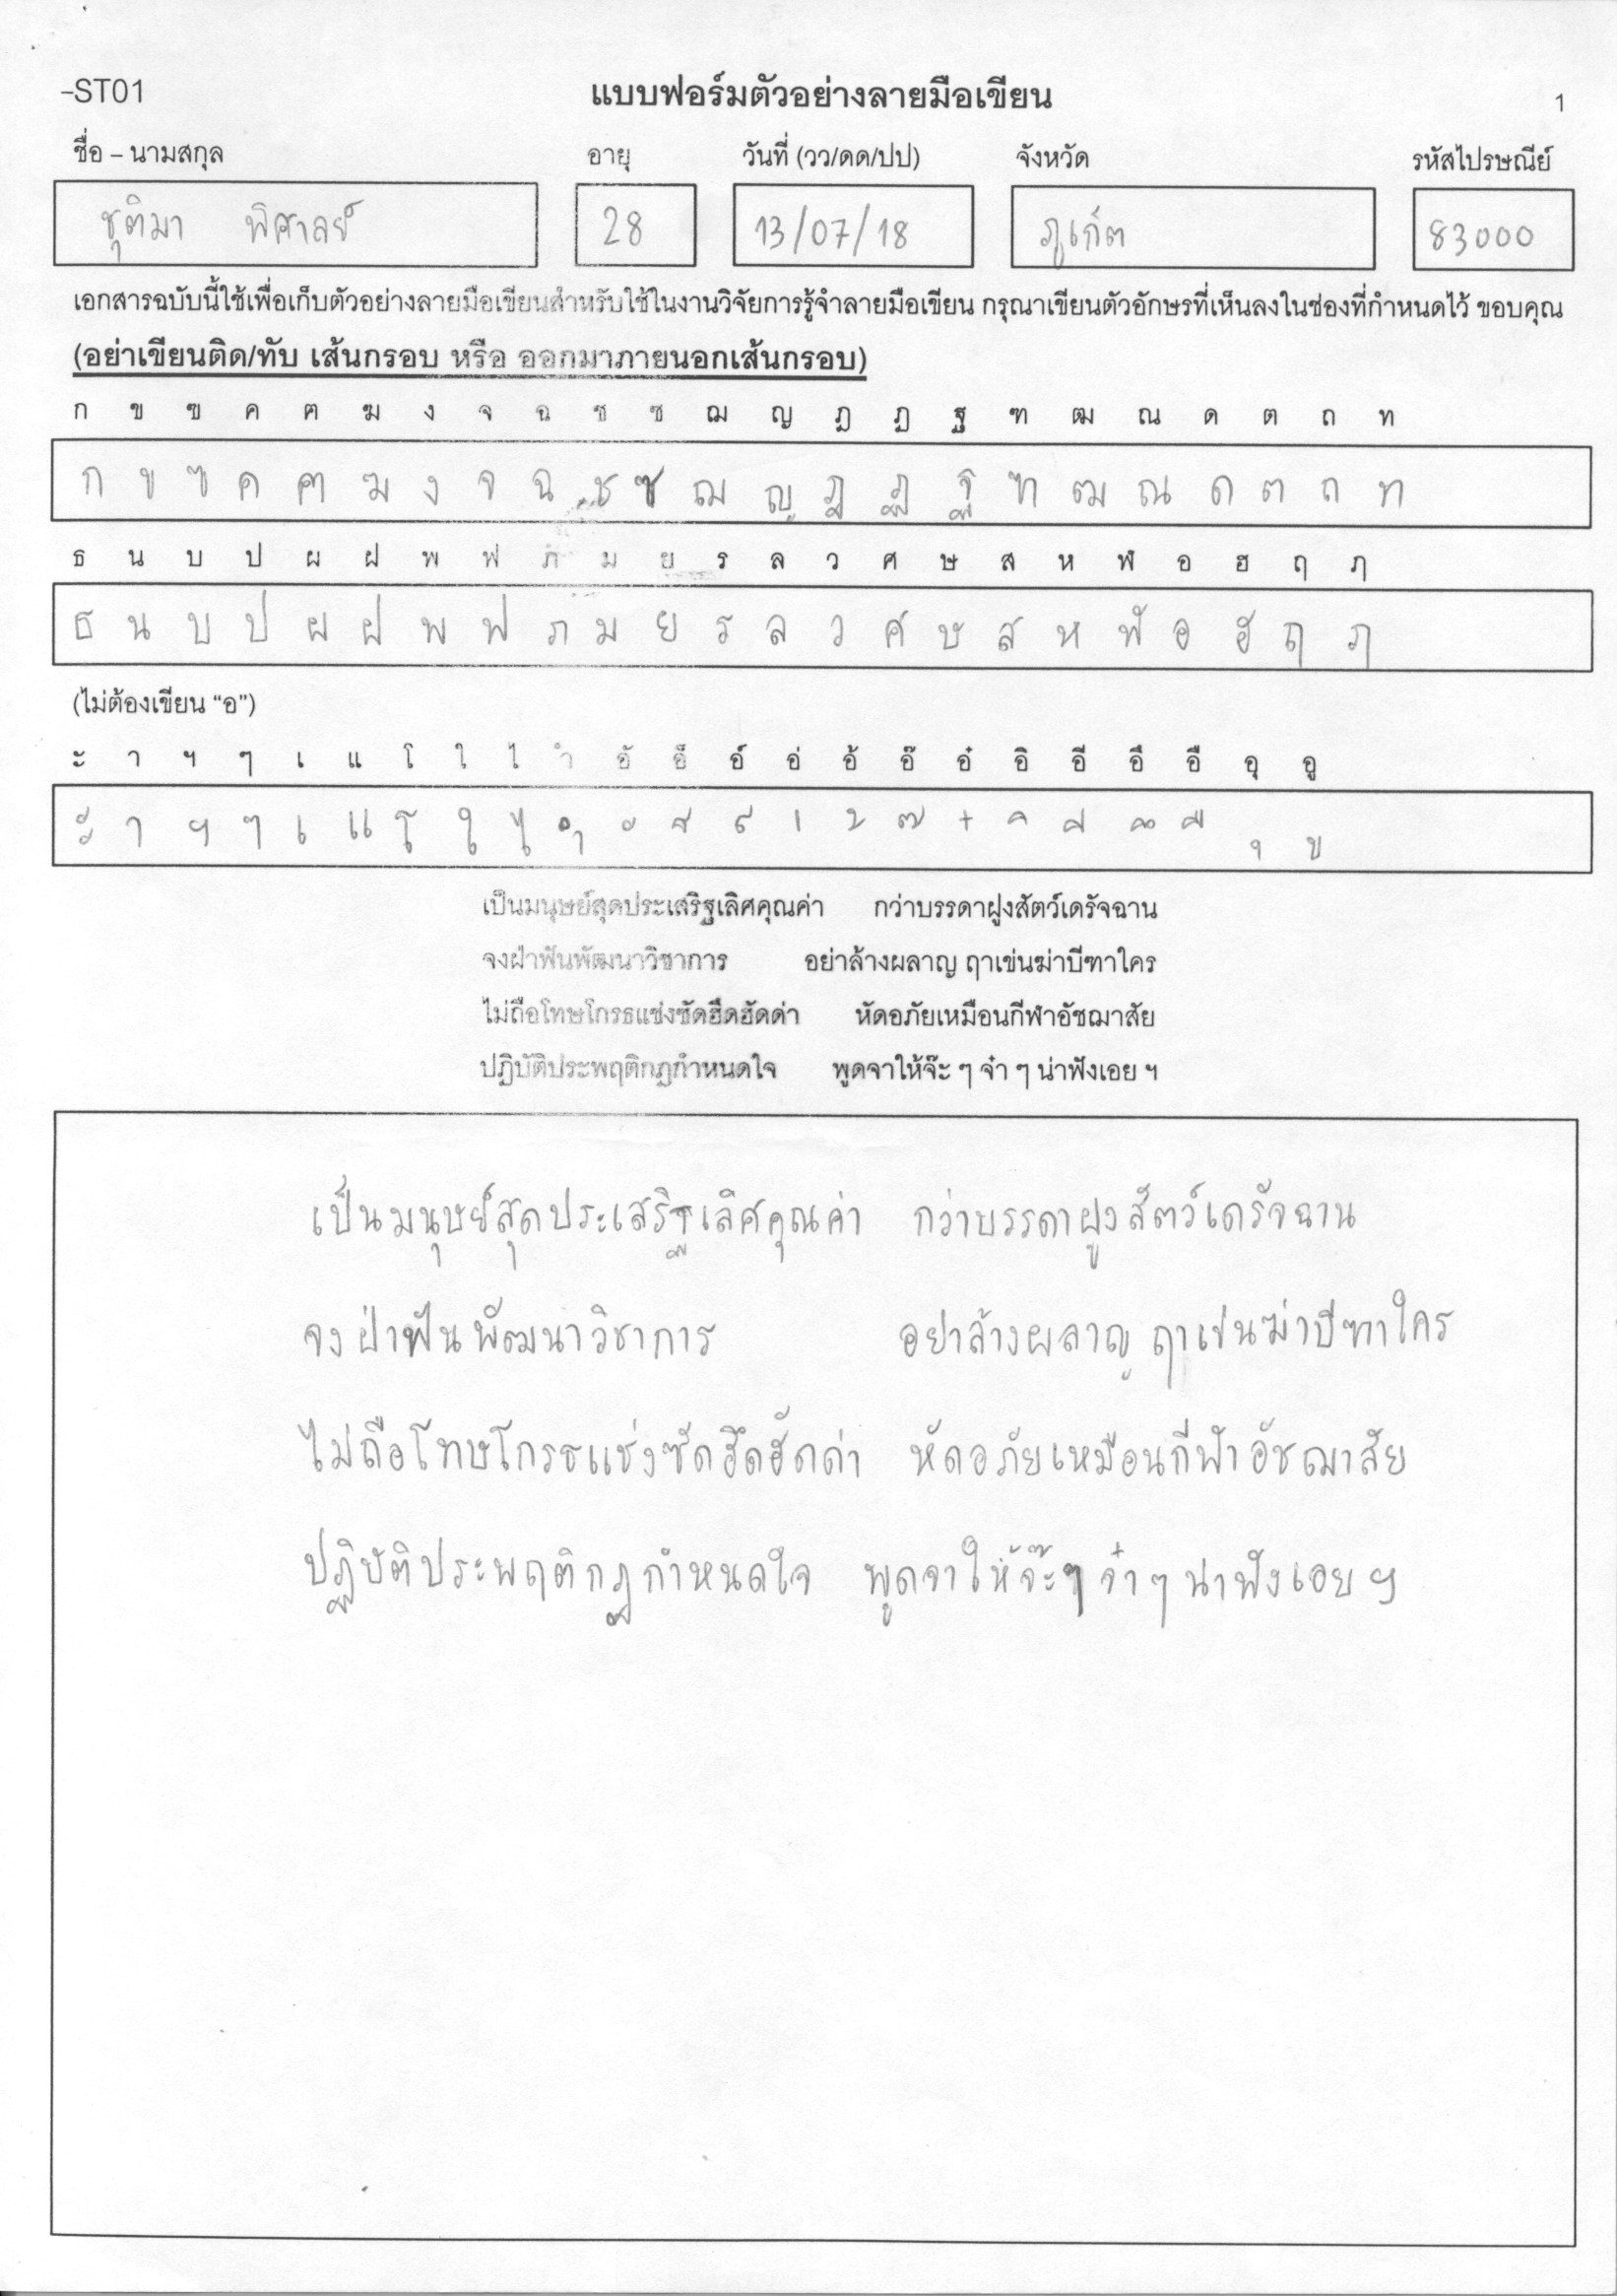 -ST01 แบบฟอร์มตัวอย่างลายมือเขียน 1
ชื่อ – นามสกุล อายุ วันที่ (วว/ดด/ปป) จังหวัด รหัสไปรษณีย์
ชุติมา พิศาลย์ 28 13/07/18 ภูเก็ต 83000
เอกสารฉบับนี้ใช้เพื่อเก็บตัวอย่างลายมือเขียนสำหรับใช้ในงานวิจัยการรู้จำลายมือเขียน กรุณาเขียนตัวอักษรที่เห็นลงในช่องที่กำหนดไว้ ขอบคุณ
(อย่าเขียนติด/ทับ เส้นกรอบ หรือ ออกมาภายนอกเส้นกรอบ)
ก ข ฃ ค ฅ ฆ ง จ ฉ ช ซ ฌ ญ ฎ ฏ ฐ ฑ ฒ ณ ด ต ถ ท
ก ข ฃ ค ฅ ฆ ง จ ฉ ช ซ ฌ ญ ฎ ฏ ฐ ฑ ฒ ณ ด ต ถ ท
ธ น บ ป ผ ฝ พ ฟ ภ ม ย ร ล ว ศ ษ ส ห ฬ อ ฮ ฤ ฦ
ธ น บ ป ผ ฝ พ ฟ ภ ม ย ร ล ว ศ ษ ส ห ฬ อ ฮ ฤ ฦ
(ไม่ต้องเขียน “อ”)
ะ า ฯ ๆ เ แ โ ใ ไ ำ อั อ็ อ์ อ่ อ้ อ๊ อ๋ อิ อี อึ อื อุ อู
ะ า ฯ ๆ เ แ โ ใ ไ ำ ั ็ ์ ่ ้ ๊ ๋ ิ ี ึ ื ุ ู
เป็นมนุษย์สุดประเสริฐเลิศคุณค่า กว่าบรรดาฝูงสัตว์เดรัจฉาน
จงฝ่าฟันพัฒนาวิชาการ อย่าล้างผลาญ ฤาเข่นฆ่าบีฑาใคร
ไม่ถือโทษโกรธแช่งซัดฮึดฮัดด่า หัดอภัยเหมือนกีฬาอัชฌาสัย
ปฏิบัติประพฤติกฎกำหนดใจ พูดจาให้จ๊ะ ๆ จ๋า ๆ น่าฟังเอย ฯ
เป็นมนุษย์สุดประเสริฐเลิศคุณค่า กว่าบรรดาฝูงสัตว์เดรัจฉาน
จงฝ่าฟันพัฒนาวิชาการ อย่าล้างผลาญ ฤาเข่นฆ่าบีฑาใคร
ไม่ถือโทษโกรธแช่งซัดฮึดฮัดด่า หัดอภัยเหมือนกีฬาอัชฌาสัย
ปฏิบัติประพฤติกฏกำหนดใจ พูดจาให้จ๊ะๆ จ๋าๆ น่าฟังเอย ฯ